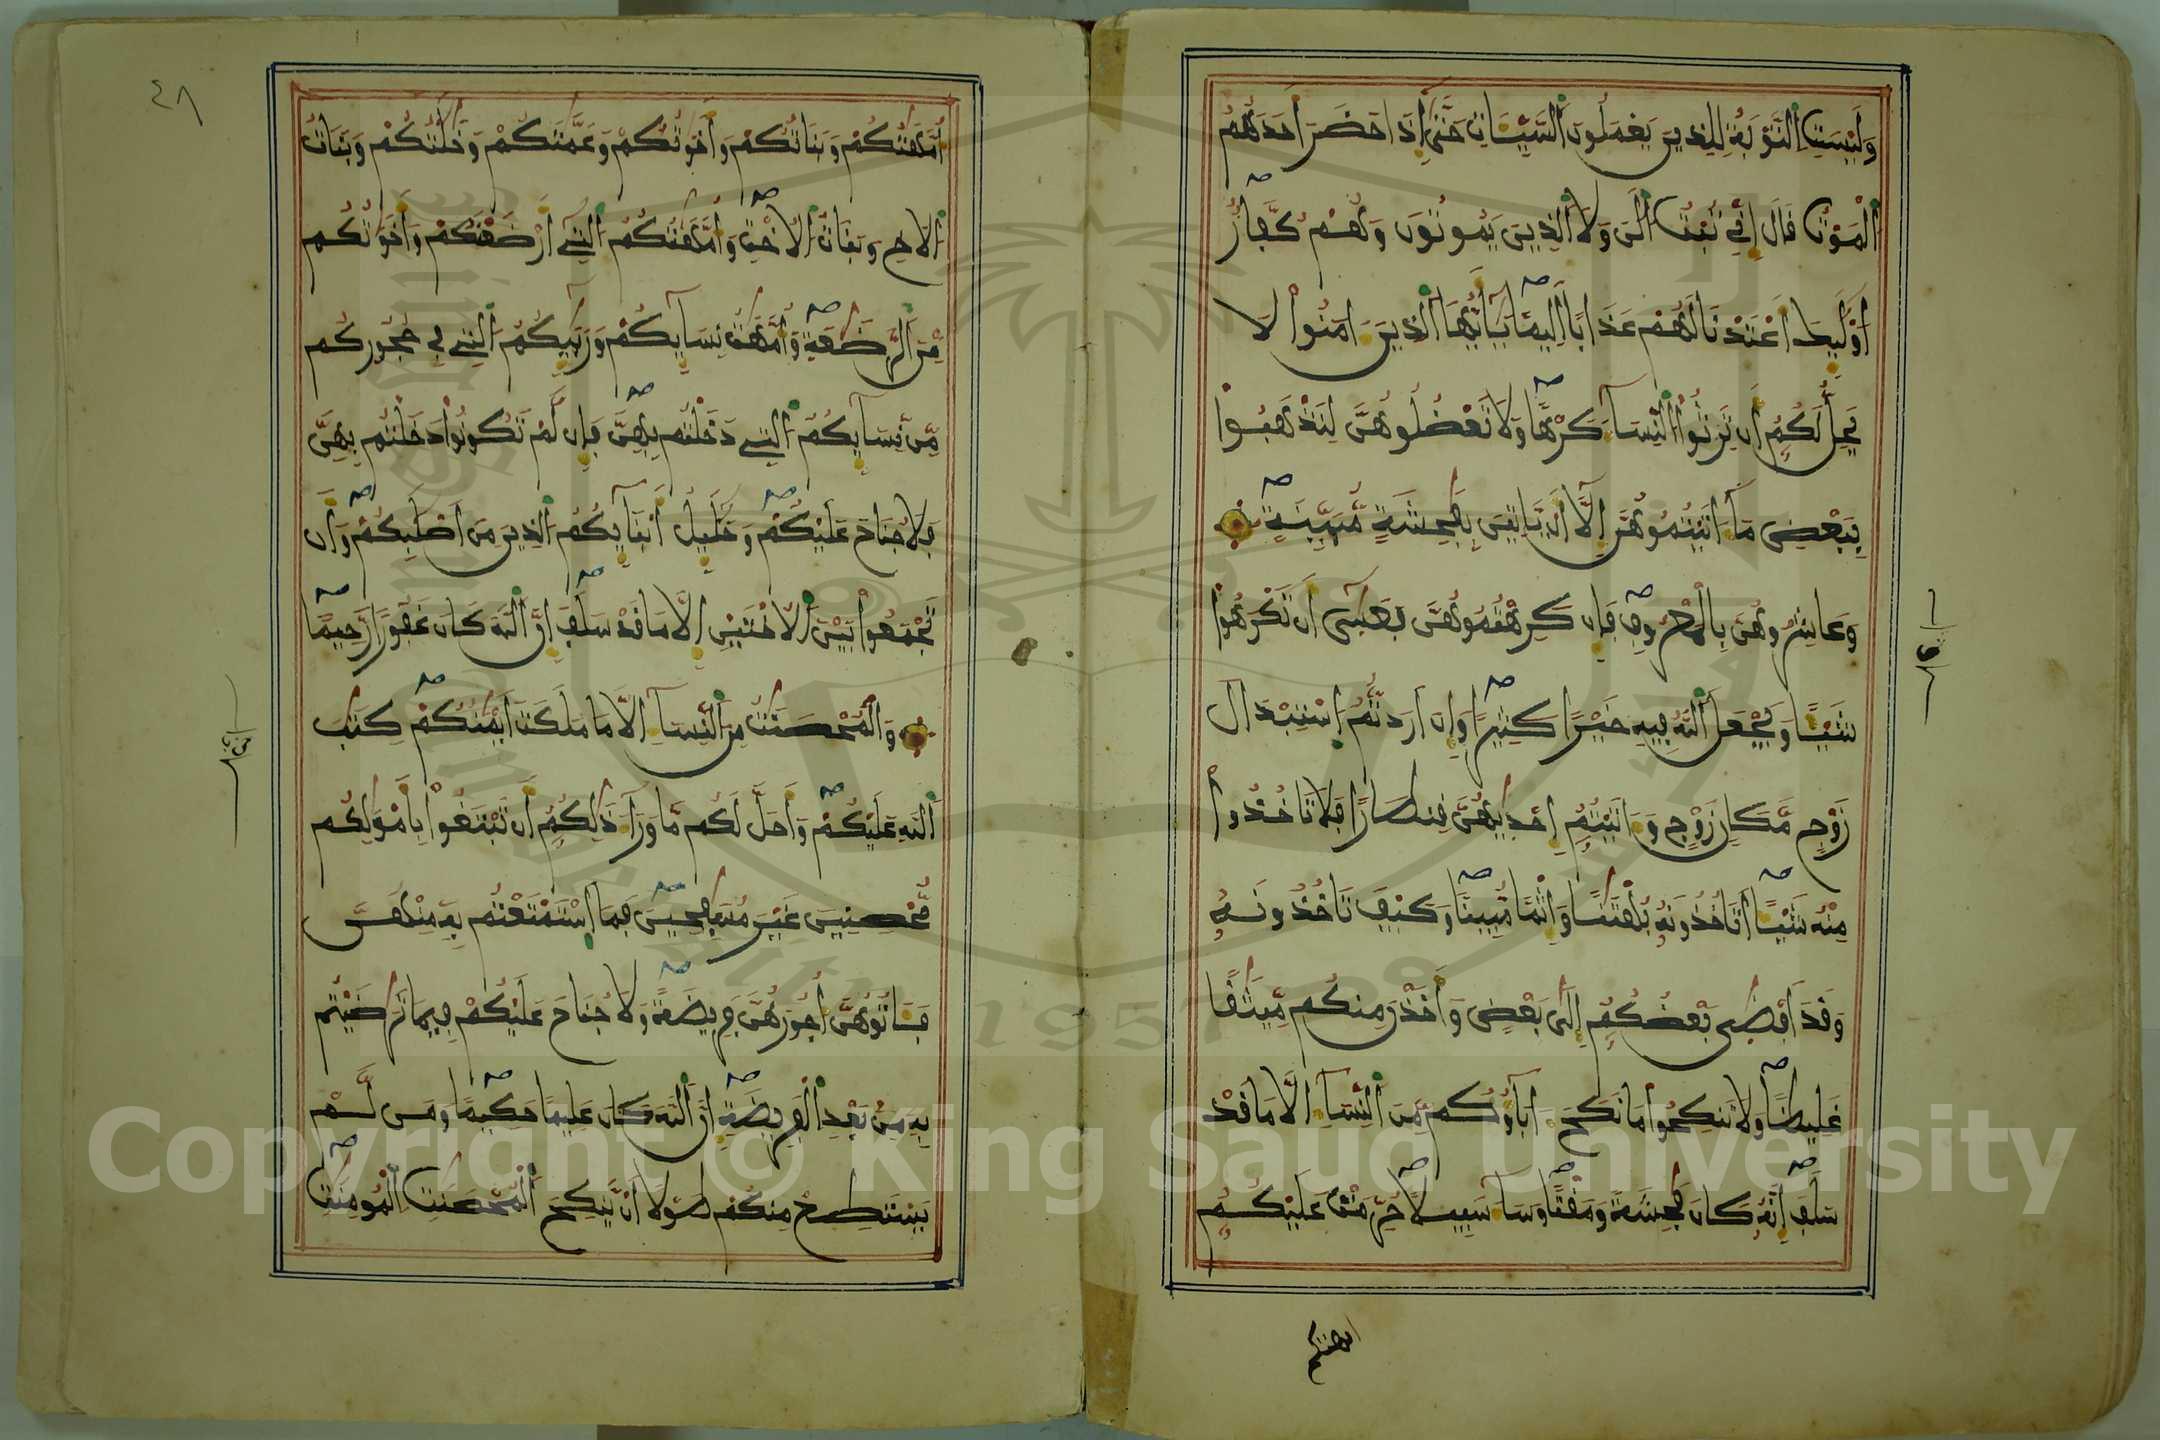 وَلَيْسَتِ اِ۬لتَّوْبَةُ لِلذِينَ يَعْمَلُونَ اَ۬لسَّيِّـَٔاتِ حَتَّىٰٓ إِذَا حَضَرَ أَحَدَهُمُ
اُ۬لْمَوْتُ قَالَ إِنِّے تُبْتُ اُ۬لَٰنَ وَلَا اَ۬لذِينَ يَمُوتُونَ وَهُمْ كُفَّارٌ
ا۟وْلَٰٓئِكَ أَعْتَدْنَا لَهُمْ عَذَاباً اَلِيماً يَٰٓأَيُّهَا اَ۬لذِينَ ءَامَنُوا۟ لَا
يَحِلُّ لَكُمُۥٓ أَن تَرِثُوا۟ اُ۬لنِّسَآءَ كَرْهاً وَلَا تَعْضُلُوهُنَّ لِتَذْهَبُوا۟
بِبَعْضِ مَآ ءَاتَيْتُمُوهُنَّ إِلَّآ أَنْ يَّاتِينَ بِفَٰحِشَةٍ مُّبَيِّنَةٍ
وَعَاشِرُوهُنَّ بِالْمَعْرُوفِ فَإِن كَرِهْتُمُوهُنَّ فَعَسَىٰٓ أَن تَكْرَهُوا۟
شَيْـٔاً وَيَجْعَلَ اَ۬للَّهُ فِيهِ خَيْراً كَثِيراً وَإِنْ أَرَدتُّمُ اُ۪سْتِبْدَالَ
زَوْجٍ مَّكَانَ زَوْجٍ وَءَاتَيْتُمُۥٓ إِحْدَىٰهُنَّ قِنطَاراً فَلَا تَاخُذُوا۟
مِنْهُ شَيْـٔاً اَتَاخُذُونَهُۥ بُهْتَٰناً وَإِثْماً مُّبِيناً وَكَيْفَ تَاخُذُونَهُۥ
وَقَدَ اَفْضَىٰ بَعْضُكُمُۥٓ إِلَىٰ بَعْضٍ وَأَخَذْنَ مِنكُم مِّيثَٰقاً
غَلِيظاً وَلَا تَنكِحُوا۟ مَا نَكَحَ ءَابَآؤُكُم مِّنَ اَ۬لنِّسَآءِ الَّا مَا قَدْ
سَلَفَ إِنَّهُۥ كَانَ فَٰحِشَةً وَمَقْتاً وَسَآءَ سَبِيلاً حُرِّمَتْ عَلَيْكُمُۥٓ
أمهتكم
أُمَّهَٰتُكُمْ وَبَنَاتُكُمْ وَأَخَوَٰتُكُمْ وَعَمَّٰتُكُمْ وَخَٰلَٰتُكُمْ وَبَنَاتُ
اُ۬لَاخِ وَبَنَاتُ اُ۬لُاخْتِ وَأُمَّهَٰتُكُمُ اُ۬لَّٰتِےٓ أَرْضَعْنَكُمْ وَأَخَوَٰتُكُم
مِّنَ اَ۬لرَّضَٰعَةِ وَأُمَّهَٰتُ نِسَآئِكُمْ وَرَبَٰٓئِبُكُمُ اُ۬لَّٰتِے فِے حُجُورِكُم
مِّن نِّسَآئِكُمُ اُ۬لَّٰتِے دَخَلْتُم بِهِنَّ فَإِن لَّمْ تَكُونُوا۟ دَخَلْتُم بِهِنَّ
فَلَا جُنَاحَ عَلَيْكُمْ وَحَلَٰٓئِلُ أَبْنَآئِكُمُ اُ۬لذِينَ مِنَ اَصْلَٰبِكُمْ وَأَن
تَجْمَعُوا۟ بَيْنَ اَ۬لُاخْتَيْنِ إِلَّا مَا قَدْ سَلَفَ إِنَّ اَ۬للَّهَ كَانَ غَفُوراً رَّحِيماً
وَالْمُحْصَنَٰتُ مِنَ اَ۬لنِّسَآءِ الَّا مَا مَلَكَتَ اَيْمَٰنُكُمْ كِتَٰبَ
اَ۬للَّهِ عَلَيْكُمْ وَأَحَلَّ لَكُم مَّا وَرَآءَ ذَٰلِكُمُۥٓ أَن تَبْتَغُوا۟ بِأَمْوَٰلِكُم
مُّحْصِنِينَ غَيْرَ مُسَٰفِحِينَ فَمَا اَ۪سْتَمْتَعْتُم بِهِۦ مِنْهُنَّ
فَـَٔاتُوهُنَّ أُجُورَهُنَّ فَرِيضَةً وَلَا جُنَاحَ عَلَيْكُمْ فِيمَا تَرَٰضَيْتُم
بِهِۦ مِنۢ بَعْدِ اِ۬لْفَرِيضَةِ إِنَّ اَ۬للَّهَ كَانَ عَلِيماً حَكِيماً وَمَن لَّمْ
يَسْتَطِعْ مِنكُمْ طَوْلاً اَنْ يَّنكِحَ اَ۬لْمُحْصَنَٰتِ اِ۬لْمُومِنَٰتِ
٤٨
Copyright © King Saud University
1957